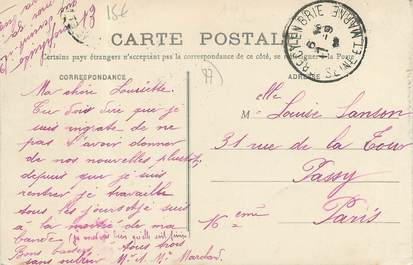 15€
CARTE POSTALE
Certains pays étrangers n'acceptent pas la correspondance de ce côté, se renseigner à la Poste
CORRESPONDANCE
ROZAY-EN-BRIE
SEINE-ET-MARNE
Ma chère Louisette
Tu dois dire que je
suis ingrate de ne
pas t'avoir donner
de nos nouvelles plustôt
depuis que je suis
rentrer je travaille
tous les jours et je suis
à la moitié de ma
bande
Bons baisers à tous trois
sans oublier Mr & Me
Melle Louise Sanson
31 rue de la Tour
Passy
Paris
16 ème
77